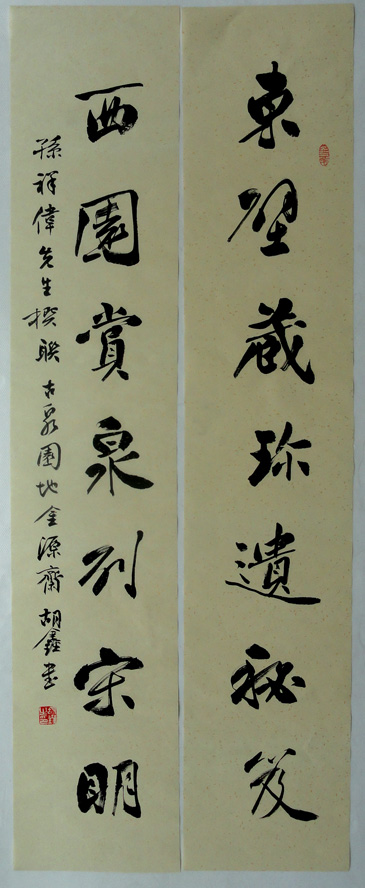 東壁藏珍遺秘笈
西園賞泉列宋明
孫祥偉先生撰聯古泉園地金源齋胡鑫書